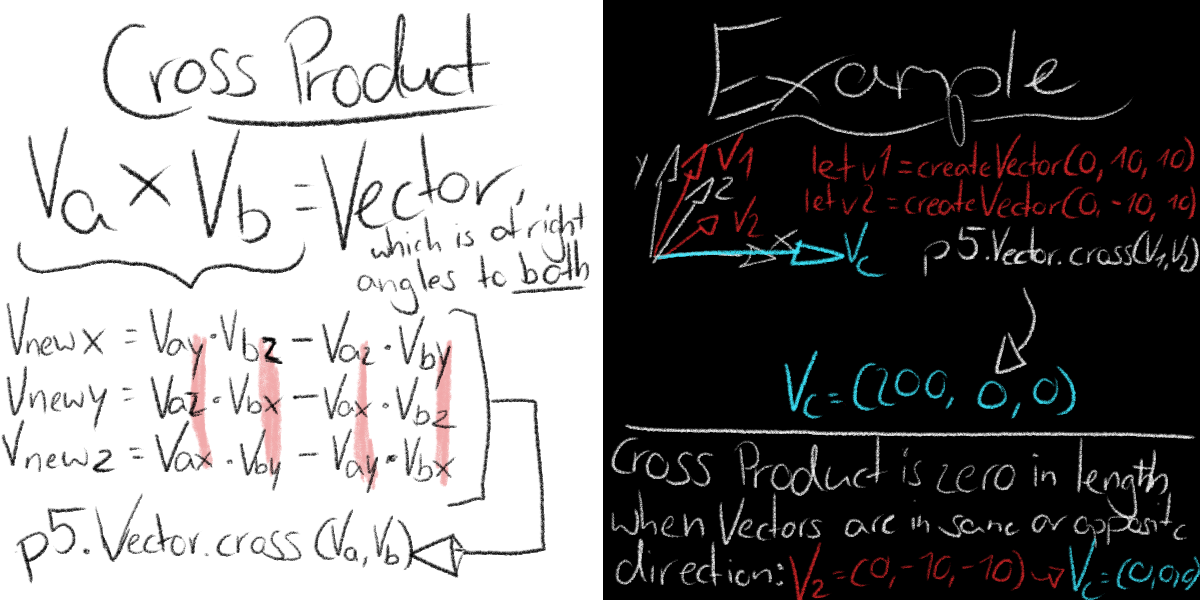 Cross Product
Va × Vb = Vector,
which is at right
angles to both
Vnewx = Vay · Vbz - Vaz · Vby
Vnewy = Vaz · Vbx - Vax · Vbz
Vnewz = Vax · Vby - Vay · Vbx
p5.Vector.cross(Va, Vb)
Example
y
V1
z
V2
x
Vc
let v1 = createVector(0, 10, 10)
let v2 = createVector(0, -10, 10)
p5.Vector.cross(V1, V2)
Vc = (200, 0, 0)
Cross Product is zero in length
when Vectors are in same or opposite
direction: V2 = (0, -10, -10) → Vc = (0,0,0)